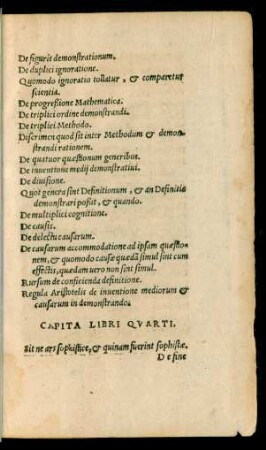 De figuris demonstrationum.
De duplici ignoratione.
Quomodo ignoratio tollatur, & comparetur
scientia.
De progressione Mathematica.
De triplici ordine demonstrandi.
De triplici Methodo.
Discrimen quod sit inter Methodum & demon
strandi rationem.
De quatuor quæstionum generibus.
De inuentione medij demonstratiui.
De diuisione.
Quot genera sint Definitionum, & an Definitio
demonstrari possit, & quando.
De multiplici cognitione.
De causis.
De delectu causarum.
De causarum accommodatione ad ipsam quæstio
nem, & quomodo causæ quædã simul sint cum
effectis, quædam vero non sint simul.
Rursum de conficienda definitione.
Regula Aristotelis de inuentione mediorum &
causarum in demonstrando.
CAPITA LIBRI QVARTI.
Sit ne ars sophistice, & quinam fuerint sophistæ.
De fine